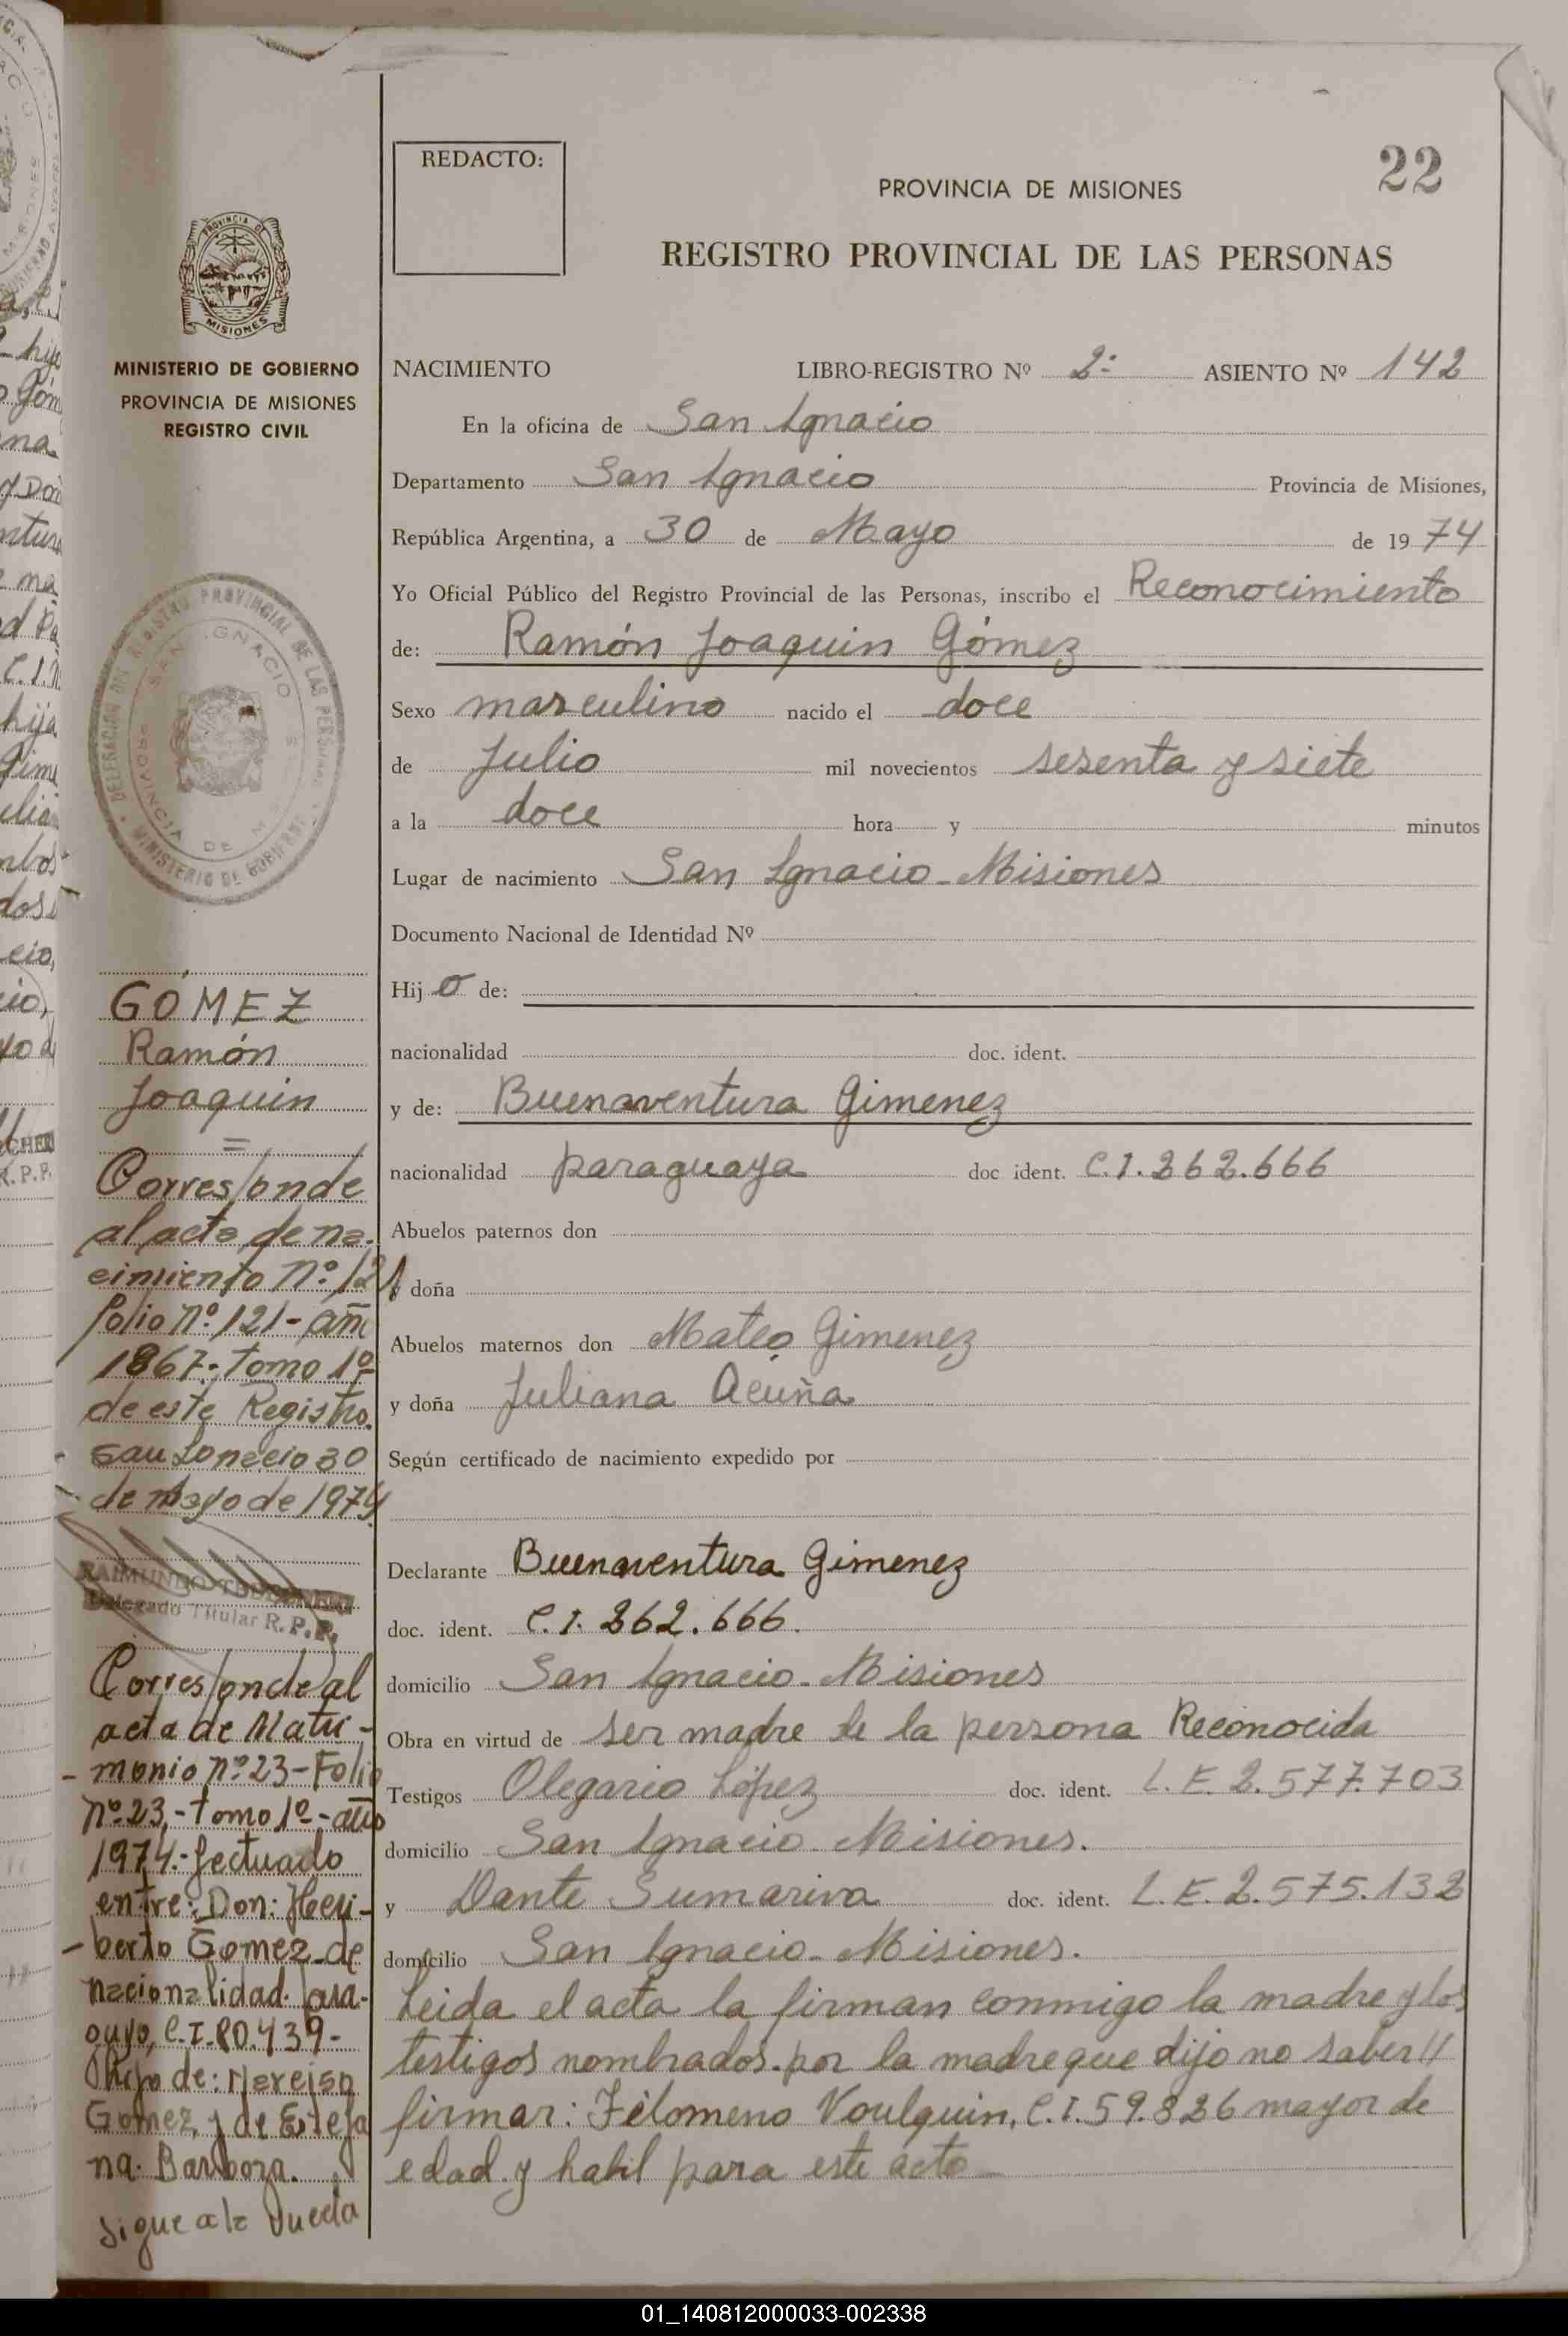 REDACTO:
22
PROVINCIA DE MISIONES
REGISTRO PROVINCIAL DE LAS PERSONAS
PROVINCIA DE
MISIONES
MINISTERIO DE GOBIERNO
PROVINCIA DE MISIONES
REGISTRO CIVIL
NACIMIENTO LIBRO-REGISTRO Nº 2º ASIENTO Nº 142
En la oficina de San Ignacio
Departamento San Ignacio Provincia de Misiones,
República Argentina, a 30 de Mayo de 1974
Yo Oficial Público del Registro Provincial de las Personas, inscribo el Reconocimiento
de: Ramón Joaquin Gómez
Sexo masculino nacido el doce
de Julio mil novecientos sesenta y siete
a la doce hora y minutos
Lugar de nacimiento San Ignacio - Misiones
Documento Nacional de Identidad Nº
Hijo de:
nacionalidad doc. ident.
y de: Buenaventura Gimenez
nacionalidad paraguaya doc ident. C.I. 262.666
Abuelos paternos don
y doña
Abuelos maternos don Mateo Gimenez
y doña Juliana Acuña
Según certificado de nacimiento expedido por
Declarante Buenaventura Gimenez
doc. ident. C.I. 262.666.
domicilio San Ignacio - Misiones
Obra en virtud de ser madre de la persona Reconocida
Testigos Olegario López doc. ident. L.E. 2.577.703
domicilio San Ignacio - Misiones.
y Dante Sumariva doc. ident. L.E. 2.575.132
domicilio San Ignacio - Misiones.
Leida el acta la firman conmigo la madre y los
testigos nombrados. por la madre que dijo no saber //
firmar: Filomeno Voulquin, C.I. 59.826 mayor de
edad y habil para este acto
DELEGACION DEL REGISTRO PROVINCIAL DE LAS PERSONAS
SAN IGNACIO
PROVINCIA DE MISIONES
MINISTERIO DE GOBIERNO
GÓMEZ
Ramón
Joaquin
=
Corresponde
al acta de na-
cimiento nº: 121
folio nº 121 - año
1867.- tomo 1º
de este Registro.
San Ignacio 30
de mayo de 1974
RAIMUNDO
Delegado Titular R.P.P.
Corresponde al
acta de Matri-
- monio nº 23 - Folio
nº 23,- tomo 1º - año
1974.- fectuado
entre: Don: Heri-
- berto Gomez de
nacionalidad para-
guyo, C.I. 80.439 -
hijo de: Narciso
Gomez y de Estefa
na Barboza.
sigue a la vuelta
01_140812000033-002338